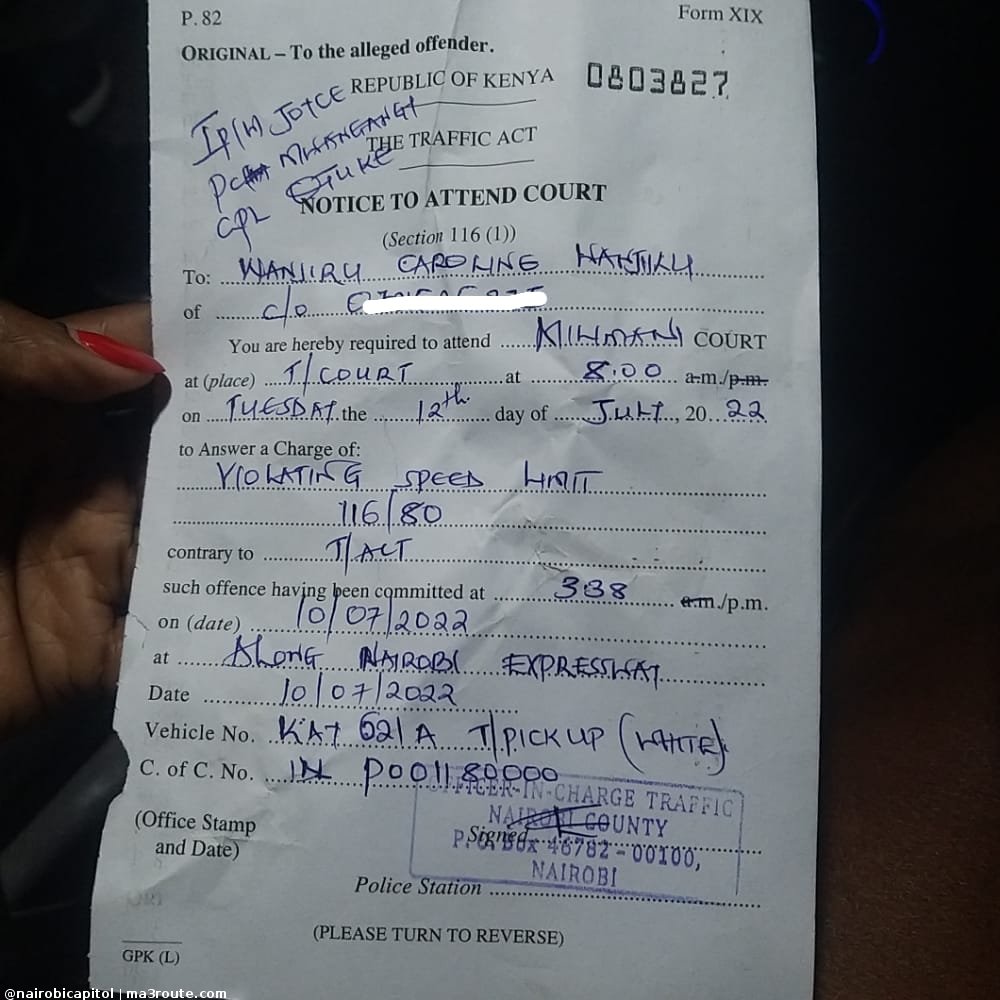 P. 82
Form XIX
ORIGINAL – To the alleged offender.
REPUBLIC OF KENYA
0803827
IP(W) JOYCE
THE TRAFFIC ACT
CPL
NOTICE TO ATTEND COURT
(Section 116 (1))
To: WANJIRU CAROLINE WANJIKU
of c/o
You are hereby required to attend MILIMANI COURT
at (place) T/COURT at 8:00 a.m./p.m.
on TUESDAY the 12th day of JULY, 20 22
to Answer a Charge of:
VIOLATING SPEED LIMIT
116/80
contrary to T/ACT
such offence having been committed at 338 a.m./p.m.
on (date) 10/07/2022
at ALONG NAIROBI EXPRESSWAY
Date 10/07/2022
Vehicle No. KAY 621 A T/PICK UP (WHITE)
C. of C. No. IN P001180000
OFFICER-IN-CHARGE TRAFFIC
(Office Stamp
NAIROBI COUNTY
and Date)
Signed
P. O. Box 46782 – 00100,
NAIROBI
Police Station
(PLEASE TURN TO REVERSE)
GPK (L)
@nairobicapitol | ma3route.com